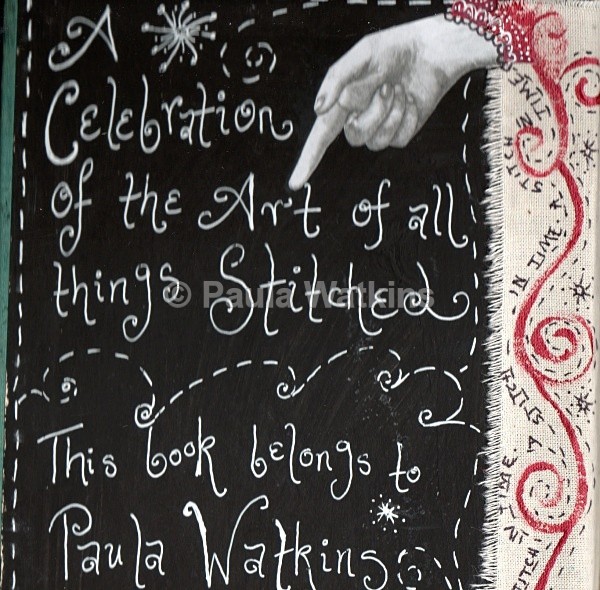 A
Celebration
of the Art of all
things Stitched
© Paula Watkins
This book belongs to
Paula Watkins
STITCH IN TIME A STITCH IN TIME A STITCH IN TIME